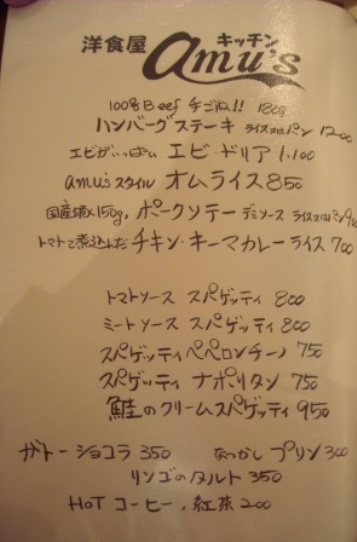 洋食屋 キッチン
amu's
100% Beef 手ごね!! 180g
ハンバーグステーキ ライス又はパン 1200
エビがいっぱい エビ・ドリア 1.100
amu'sスタイル オムライス 850
国産 150g. ポークソテー デミソース ライス又は
トマトで煮込んだ チキン・キーマカレー ライス 700
トマトソース スパゲッティ 800
ミートソース スパゲッティ 800
スパゲッティ ペペロンチーノ 750
スパゲッティ ナポリタン 750
鮭のクリームスパゲッティ 950
ガトーショコラ 350 なつかし プリン 300
リンゴのタルト 350
HOT コーヒー, 紅茶 200